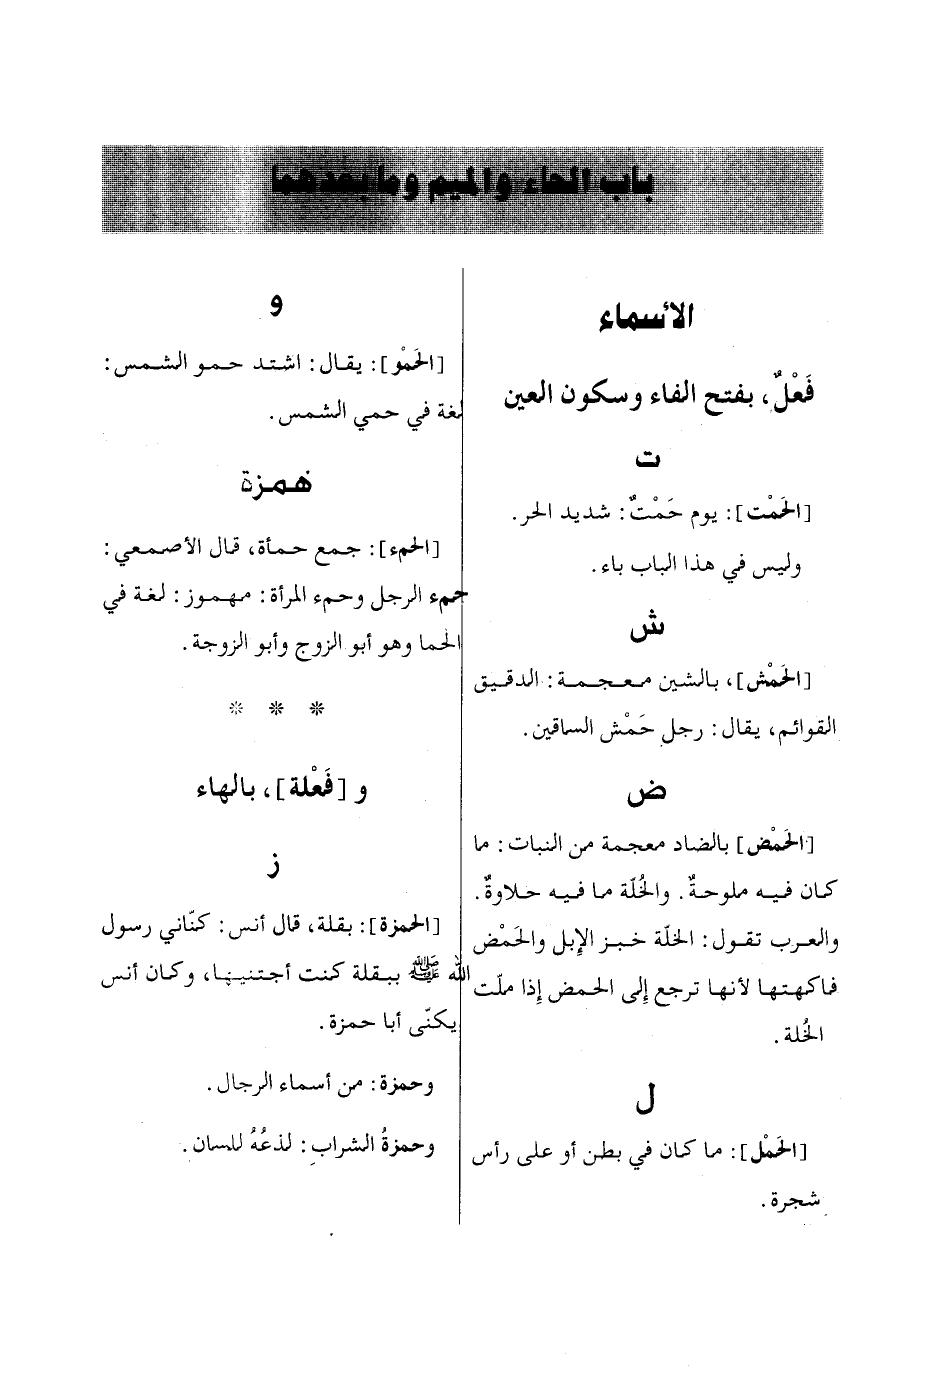 باب الحاء والميم وما بعدهما
الأسماء
فَعْلٌ، بفتح الفاء وسكون العين
ت
[الحَمْت]: يوم حَمْتٌ: شديد الحر.
وليس في هذا الباب باء.
ش
[الحَمْش]، بالشين معجمة: الدقيق
القوائم، يقال: رجل حَمْش الساقين.
ض
[الحَمْض] بالضاد معجمة من النبات: ما
كان فيه ملوحةٌ. والخُلّة ما فيه حلاوةٌ.
والعرب تقول: الخلّة خبز الإبل والحَمْض
فاكهتها لأنها ترجع إلى الحمض إذا ملّت
الخُلة.
ل
[الحَمْل]: ما كان في بطن أو على رأس
شجرة.
و
[الحَمْو]: يقال: اشتد حمو الشمس:
لغة في حمي الشمس.
همزة
[الحمء]: جمع حمأة، قال الأصمعي:
حمء الرجل وحمء المرأة: مهموز: لغة في
الحما وهو أبو الزوج وأبو الزوجة.
* * *
و [فَعْلة]، بالهاء
ز
[الحمزة]: بقلة، قال أنس: كنّاني رسول
الله ﷺ ببقلة كنت أجتنيها، وكان أنس
يكنّى أبا حمزة.
وحمزة: من أسماء الرجال.
وحمزةُ الشراب: لذعُهُ للسان.